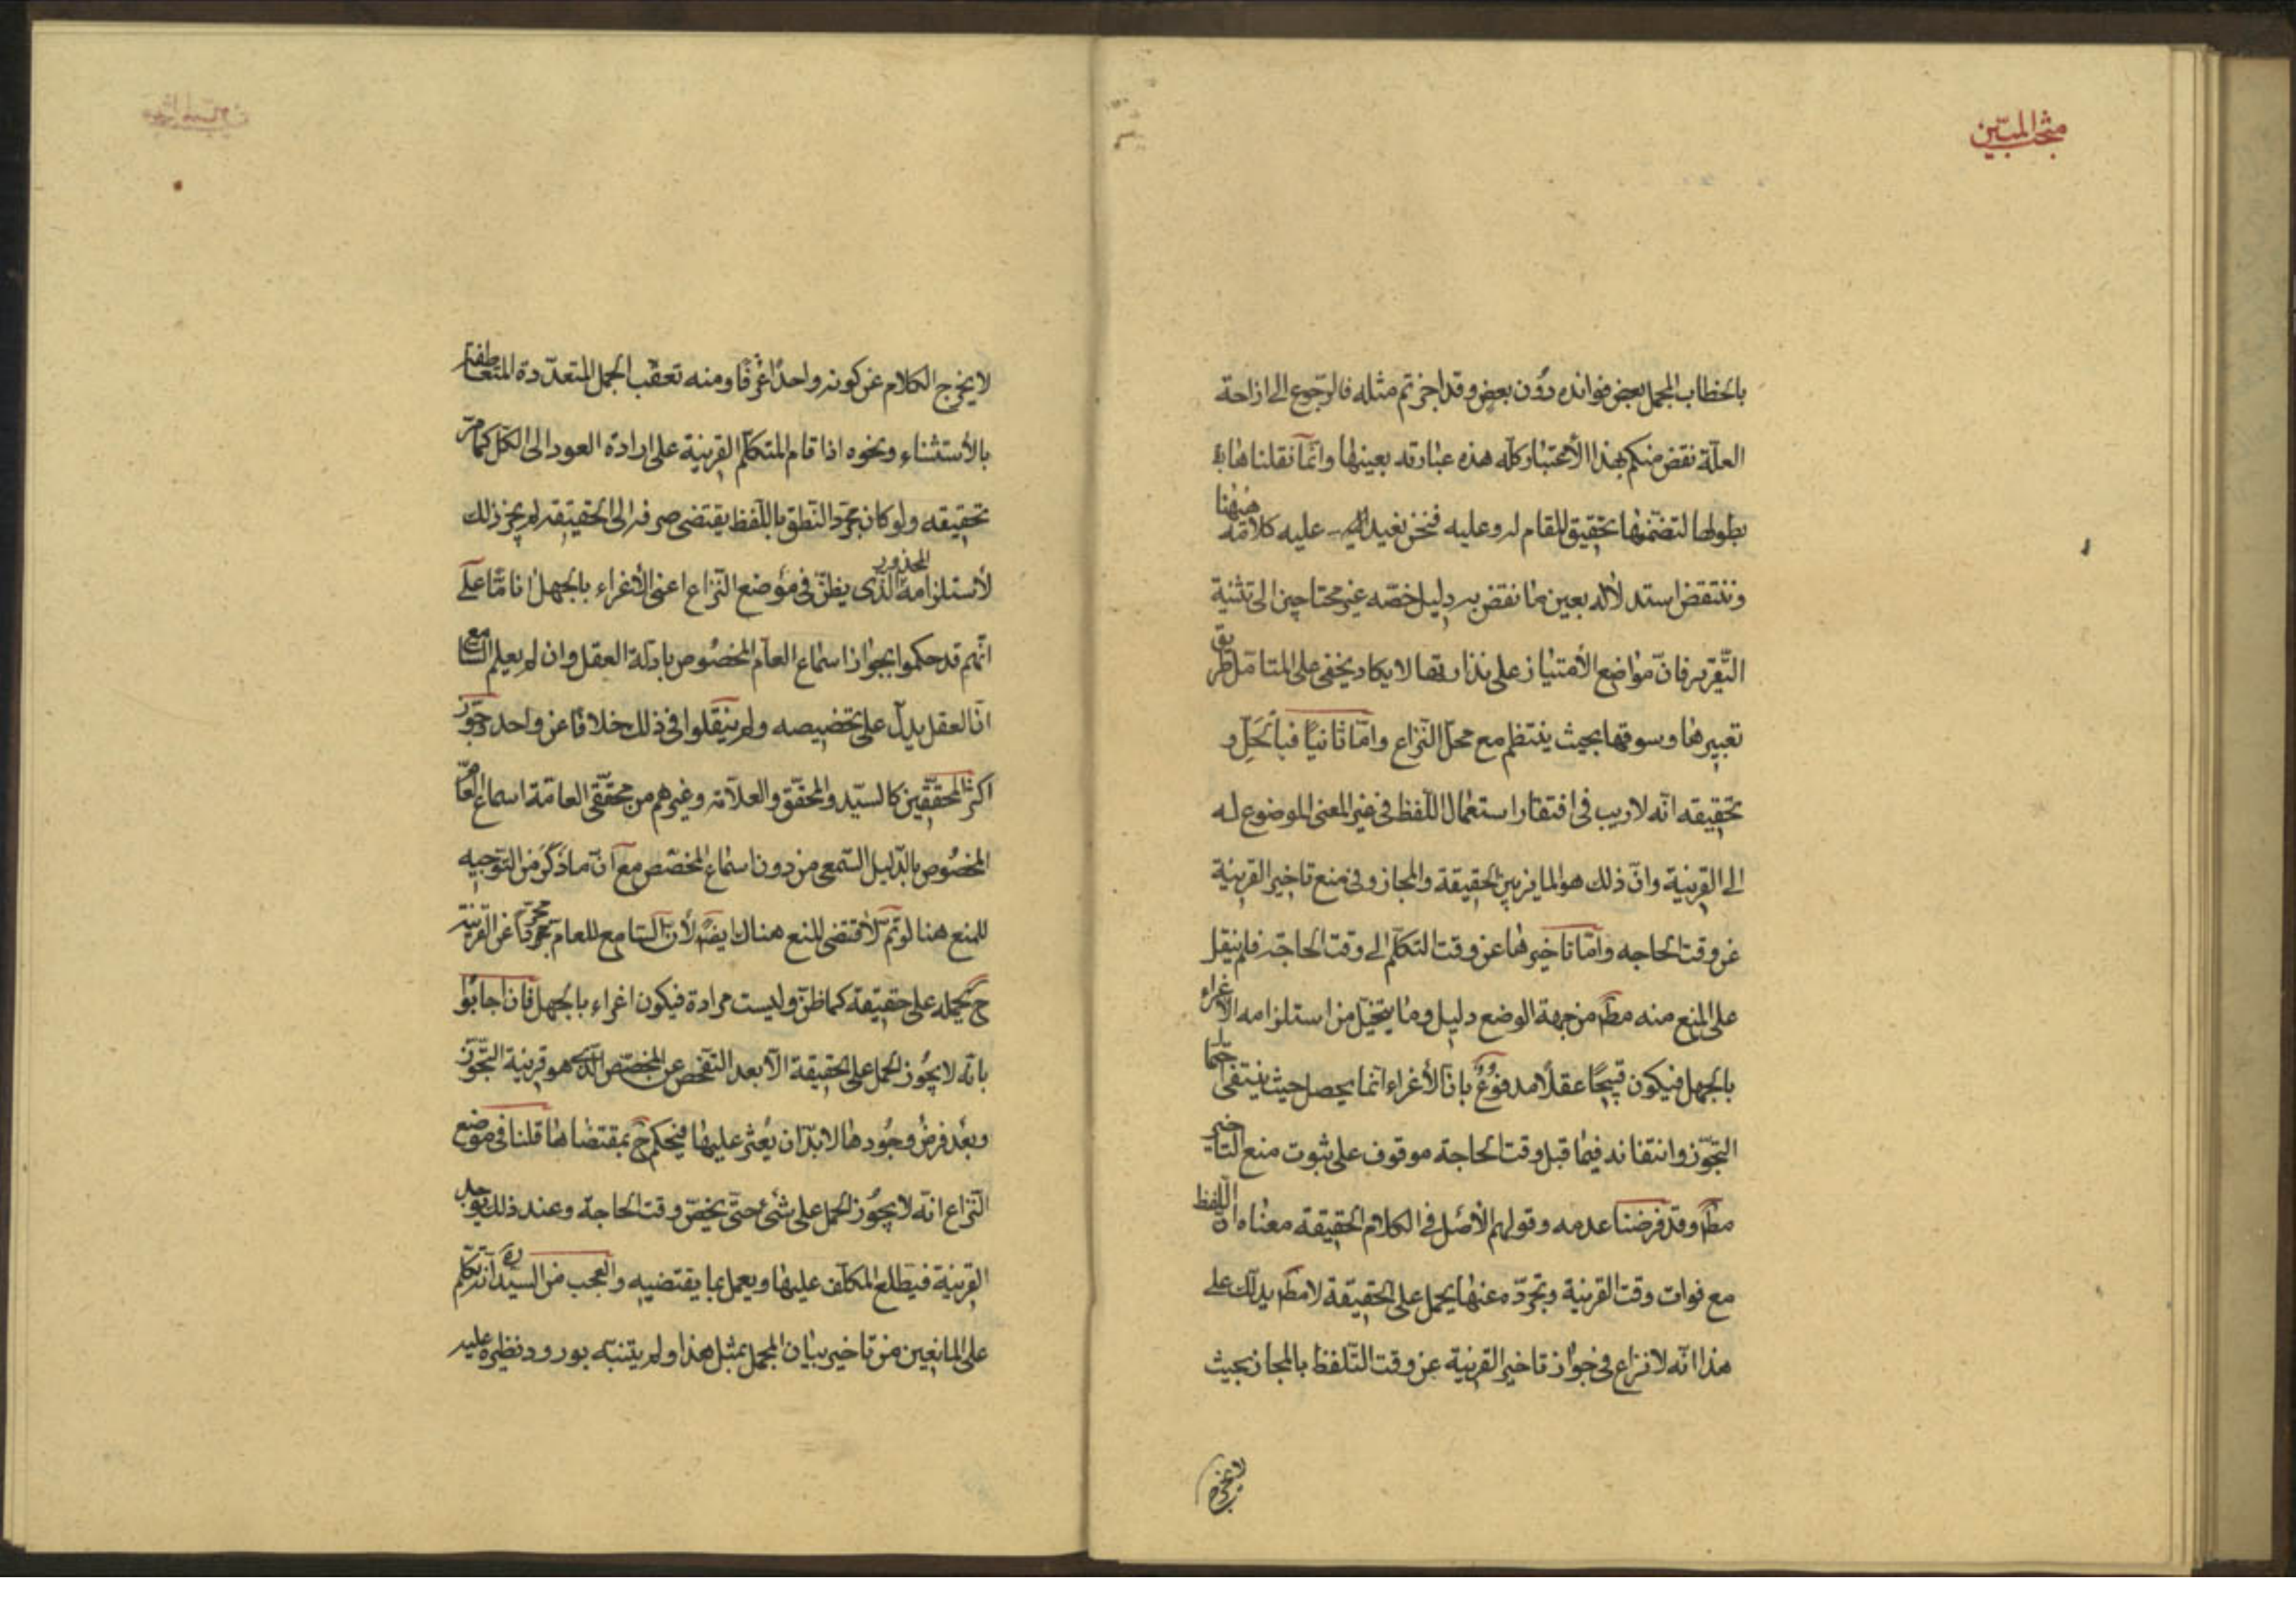 مبحث المبين
بالخطاب المجمل بعض فوائده دون بعض وقد اجزتم مثله فالرجوع الى ازاحة
العلة نقض منكم لهذا الأعتبار كله هذه عبارته بعينها وانما نقلناها
بطولها لتضمنها تحقيق المقام له وعليه فنحن نعيد عليه كلامه ههنا
وننتقض استدلاله بعين ما نقض به دليل خصمه غير محتاجين الى تثنية
التقرير فان مواضع الأمتياز على نذارتها لا يكاد يخفى على المتامل طريق
تعبيرها وسوقها بحيث ينتظم مع محل النزاع واما ثانيا فبالحل و
تحقيقه انه لاريب في افتقار استعمال اللفظ في غير المعنى الموضوع له
الى القرينة وان ذلك هو المايز بين الحقيقة والمجاز وفى منع تاخير القرينة
عن وقت الحاجه واما تاخيرها عن وقت التكلم الى وقت الحاجة فلم ينقل
على المنع منه مط من جهة الوضع دليل وما يتخيل من استلزامه الأغراء
بالجهل فيكون قبيحا عقلا مدفوع بان الأغراء انما يحصل حيث ينتفى احتمال
التجوز وانتفائه فيما قبل وقت الحاجة موقوف على ثبوت منع التاخير
مط وقد فرضنا عدمه وقولهم الأصل فى الكلام الحقيقة معناه ان اللفظ
مع فوات وقت القرينة وتجرده عنها يحمل على الحقيقة لا مط يدلك على
هذا انه لا نزاع فى جواز تاخير القرينة عن وقت التلفظ بالمجاز بحيث
لا يخرج
لا يخرج الكلام عن كونه واحدا عرفا ومنه تعقب الجمل المتعددة المتعاطفة
بالأستثناء ونحوه اذا قام المتكلم القرينة على ارادة العود الى الكل كما مر
تحقيقه ولو كان مجرد النطق باللفظ يقتضى صرفه الى الحقيقة لم يجز ذلك
لأستلزامه المحذور الذى يظن فى موضع النزاع اعنى الأغراء بالجهل انا ما على
انهم قد حكموا بجواز اسماع العام المخصوص بادلة العقل وان لم يعلم السامع
ان العقل يدل على تخصيصه ولم ينقلوا فى ذلك خلافا عن واحد وجوز
اكثر المحققين كالسيد والمحقق والعلامة وغيرهم من محققى العامة اسماع العام
المخصوص بالدليل السمعى من دون اسماع المخصص مع ان ما ذكر من التوجيه
للمنع هنا لو تم لأقتضى المنع هناك ايضا لأن السامع للعام مجردا عن القرينة
ح يحمله على حقيقة كما ظن وليست مرادة فيكون اغراء بالجهل فان اجابوا
بانه لا يجوز الحمل على الحقيقة الا بعد التفحص عن المخصص الذى هو قرينة التجوز
وبعد فرض وجودها لا بد ان يعثر عليها فيحكم ح بمقتضاها قلنا فى موضع
النزاع انه لا يجوز الحمل على شئ حتى يخص وقت الحاجة وعند ذلك يوجد
القرينة فيطلع المكلف عليها ويعمل بما يقتضيه والعجب من السيد ره انه تكلم
على المانعين من تاخير بيان المجمل بمثل هذا ولم يتنبه بورود نظيره عليه